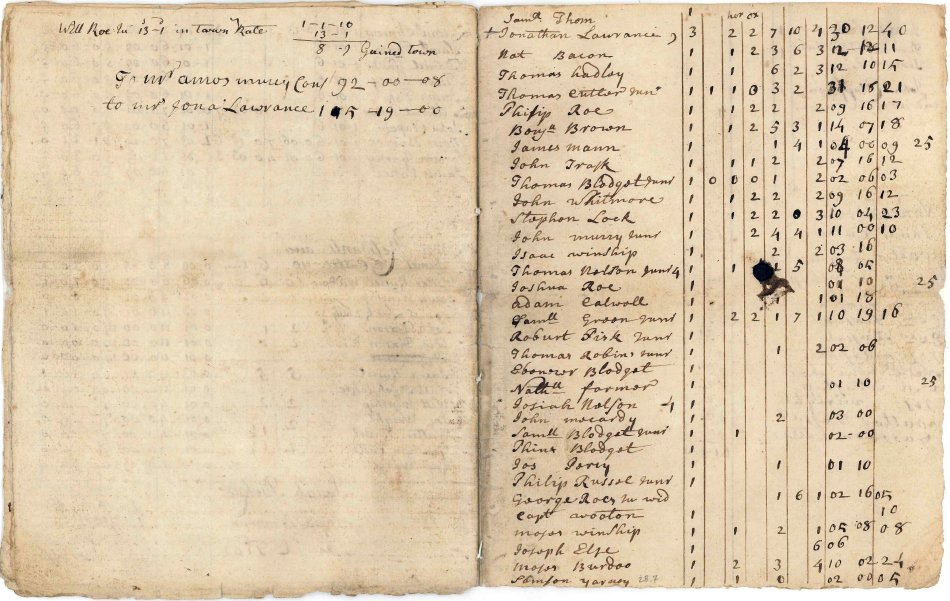 Will Roe in 13-1 in town Rate 1-1-10
13-1
8-9 Gained town
To Mr amos murry Cons 92-00-08
to mr Jona: Lawrance 115-19-00
Samll Thom 1 hor ox
+ Jonathan Lawrance 3 2 2 7 10 30 12 40
Nat Bacon 1 1 2 3 6 3 12 12 11
Thomas hadley 1 6 2 3 12 10 15
Thomas Cutter Junr 1 1 1 0 3 2 31 15 21
Philip Roe 1 1 2 2 2 09 16 17
Benja Brown 1 1 2 5 3 1 14 07 18
James mann 1 1 4 1 04 00 09 25
John Trask 1 1 1 2 2 07 16 12
Thomas Blodget Junr 1 0 0 0 1 2 02 06 03
John Whitmore 1 1 2 2 2 09 16 12
Stephen Lock 1 1 2 2 0 3 10 04 23
John murry Junr 1 2 4 4 1 11 00 10
Isaac winship 1 2 2 03 16
Thomas Nelson Junr 4 1 1 1 5 08 05
Joshua Roe 1 01 10 25
adam Calwell 1 1 01 18
Samll Green Junr 1 2 2 1 7 1 10 19 16
Robart Fisk Junr 1
Thomas Robins Junr 1 1 2 02 06
Ebenezer Blodget 1
Nathll farmer 1 01 10 25
Josiah Nelson 4 1
John mecardy 1 2 03 00
Samll Blodget Junr 1 1 02-00
Phins Blodget 1
Jos Perry 1 1 01 10
Philip Russel Junr 1
George Roes wid 1 6 1 02 16 05
Capt wooton 1 10
moses winship 1 1 2 1 05 08 08
Joseph Else 1 6 06
moses Burdoo 1 2 3 4 10 02 24
Samson yarney 28.7 1 1 0 02 00 05